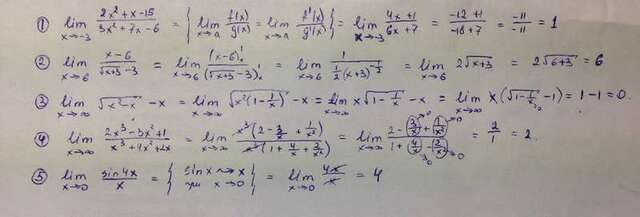 ① lim x→-3 (2x²+x-15)/(3x²+7x-6) = { lim x→a f(x)/g(x) = lim x→a f'(x)/g'(x) } = lim x→-3 (4x+1)/(6x+7) = (-12+1)/(-18+7) = (-11)/(-11) = 1
② lim x→6 (x-6)/(√(x+3)-3) = lim x→6 (x-6)'/(√(x+3)-3)' = lim x→6 1/(½(x+3)^(-½)) = lim x→6 2√(x+3) = 2√(6+3) = 6
③ lim x→∞ √(x²-x) - x = lim x→∞ √(x²(1-1/x)) - x = lim x→∞ x√(1-1/x) - x = lim x→∞ x(√(1-1/x)-1) = 1-1 = 0.
④ lim x→∞ (2x³-3x²+1)/(x³+4x²+2x) = lim x→∞ x³(2-3/x+1/x²)/x³(1+4/x+2/x²) = lim x→∞ (2-3/x+1/x²)/(1+4/x-2/x²) = 2/1 = 2.
⑤ lim x→0 sin4x/x = { sinx ~> x при x→0 } = lim x→0 4x/x = 4